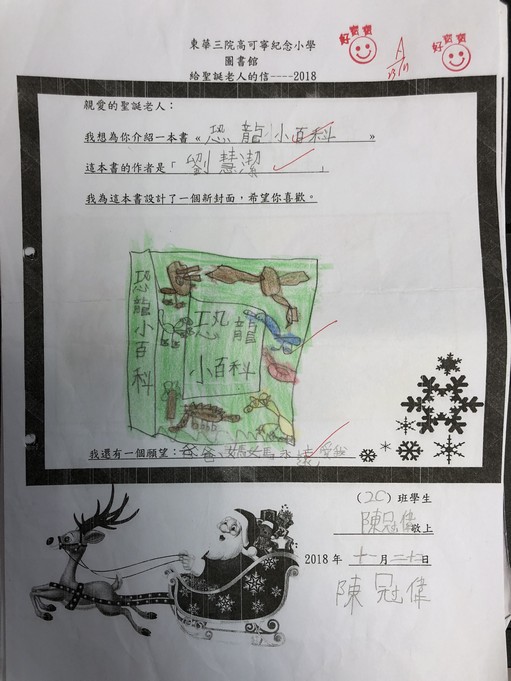 好寶寶
好寶寶
A
東華三院高可寧紀念小學
圖書館
給聖誕老人的信----2018
親愛的聖誕老人：
我想為你介紹一本書《恐龍小百科》
這本書的作者是「劉慧潔」
我為這本書設計了一個新封面，希望你喜歡。
恐龍小百科
恐龍
小百科
我還有一個願望：爸爸媽媽永遠愛我
(2C) 班學生
陳冠偉敬上
2018 年 十一 月 二十七日
陳冠偉